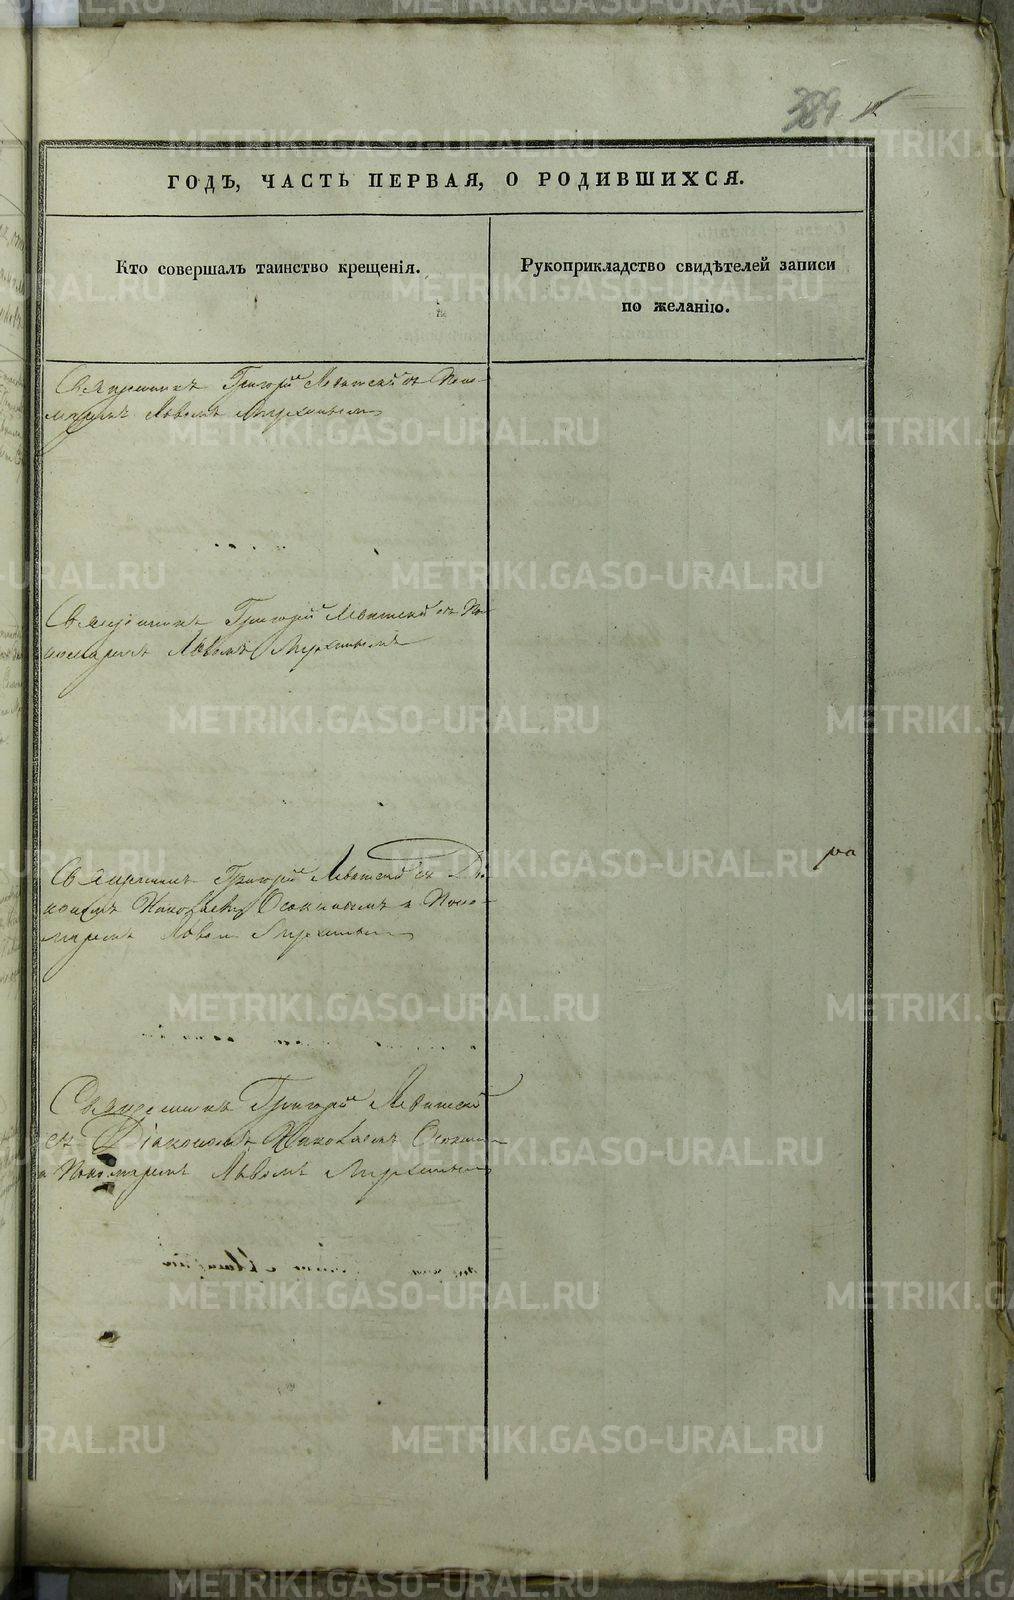 389
ГОДЪ, ЧАСТЬ ПЕРВАЯ, О РОДИВШИХСЯ.
Кто совершалъ таинство крещенія.
Рукоприкладство свидѣтелей записи
по желанію.
Священникъ Григорій Левитскій съ Поно-
маремъ Львомъ
Священникъ Григорій Левитскій съ По-
номаремъ Львомъ
Священникъ Григорій Левитскій съ Ді-
кономъ Николаемъ Осокинымъ и Поно-
маремъ Львомъ
Священникъ Григорій Левитскій
съ Діакономъ Николаемъ
и Пономаремъ Львомъ
METRIKI.GASO-URAL.RU